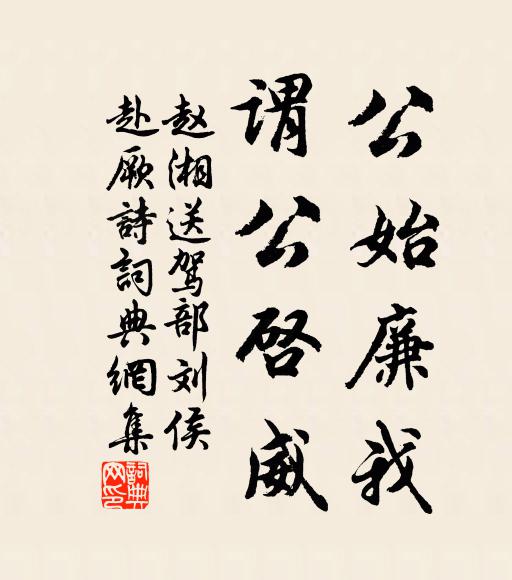 公始廉我
谓公啓威
赵湘送驾部刘侯
赴厥詩詞典網集
詞典
网印